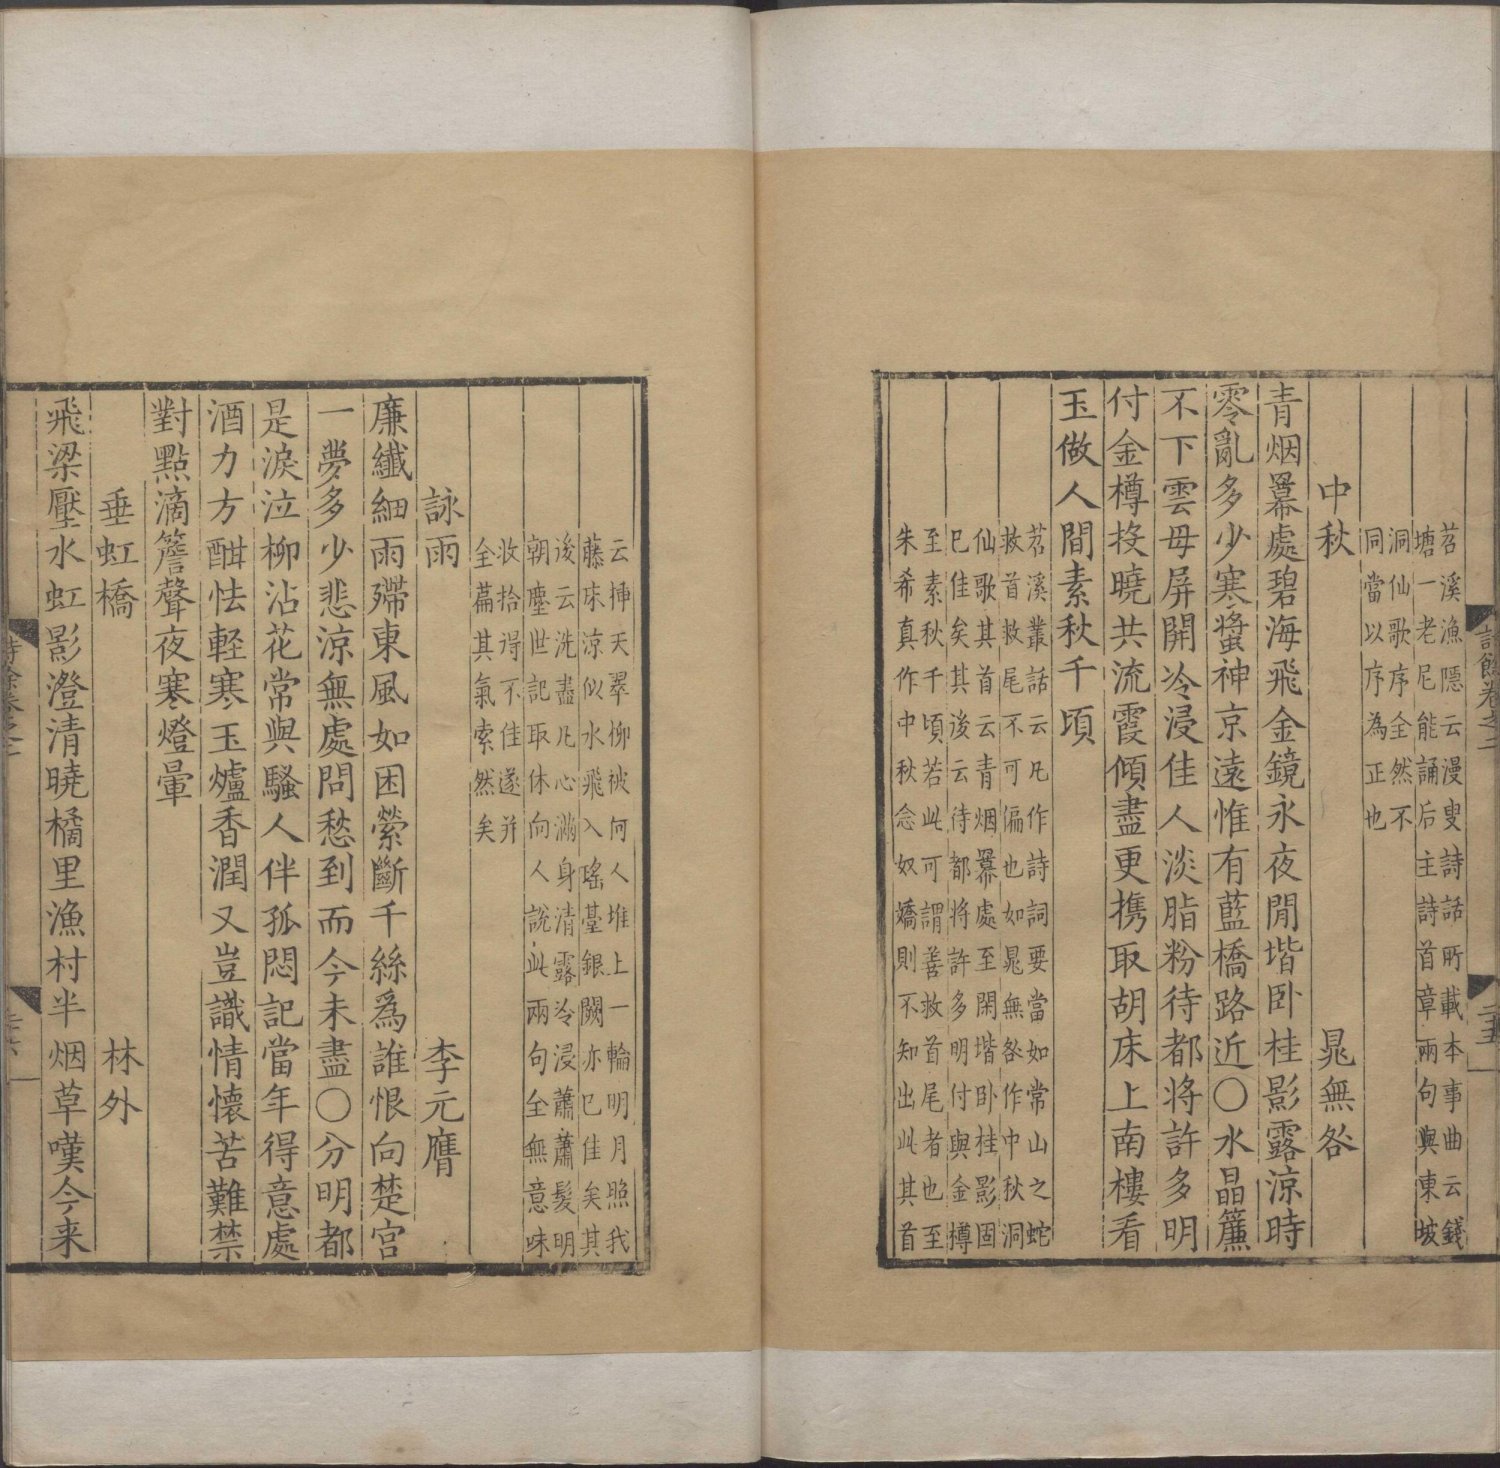 苕溪漁隱云漫叟詩話所載本事曲云錢
塘一老尼能誦后主詩首章兩句與東坡
洞仙歌序全然不
同當以序為正也
中秋 晁無咎
青烟羃處碧海飛金鏡永夜閒堦卧桂影露涼時
零亂多少寒螿神京遠惟有藍橋路近〇水晶簾
不下雲母屏開冷浸佳人淡脂粉待都将許多明
付金樽投曉共流霞傾盡更携取胡床上南樓看
玉做人間素秋千頃
苕溪叢話云凡作詩詞要當如常山之蛇
救首救尾不可偏也如晁無咎作中秋洞
仙歌其首云青烟羃處至閑堦卧桂影固
已佳矣其後云待都将許多明付與金樽
至素秋千頃若此可謂善救首尾者也至
朱希真作中秋念奴嬌則不知出此其首
云揷天翠柳被何人推上一輪明月照我
藤床涼似水飛入瑤臺銀闕亦已佳矣其
後云洗盡凡心滿身清露冷浸蕭蕭髮明
朝塵世記取休向人說此兩句全無意味
收拾得不佳遂并
全篇其氣索然矣
詠雨 李元膺
廉纖細雨殢東風如困縈斷千絲爲誰恨向楚宫
一夢多少悲涼無處問愁到而今未盡〇分明都
是淚泣柳沾花常與騷人伴孤悶記當年得意處
酒力方酣怯軽寒玉爐香潤又豈識情懷苦難禁
對點滴簷聲夜寒燈暈
垂虹橋 林外
飛梁壓水虹影澄清曉橘里漁村半烟草嘆今来